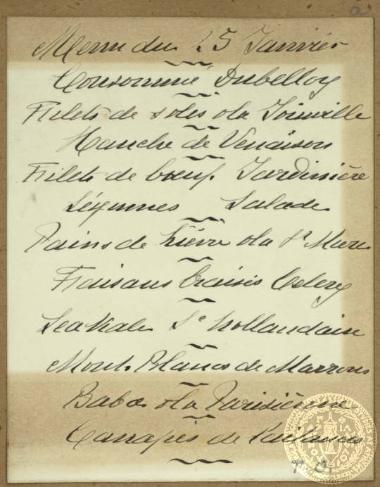 Menu du 25 Janvier
Consommé Dubelloy
Filets de soles a la Joinville
Hanche de Venaison
Filets de bœuf Jardinière
Légumes Salade
Pains de Lièvre a la St Marc
Faisans Braisés Celery
SeaKale Sce hollandaise
Mont Blanc de Marrons
Babas a la Parisienne
Canapés de